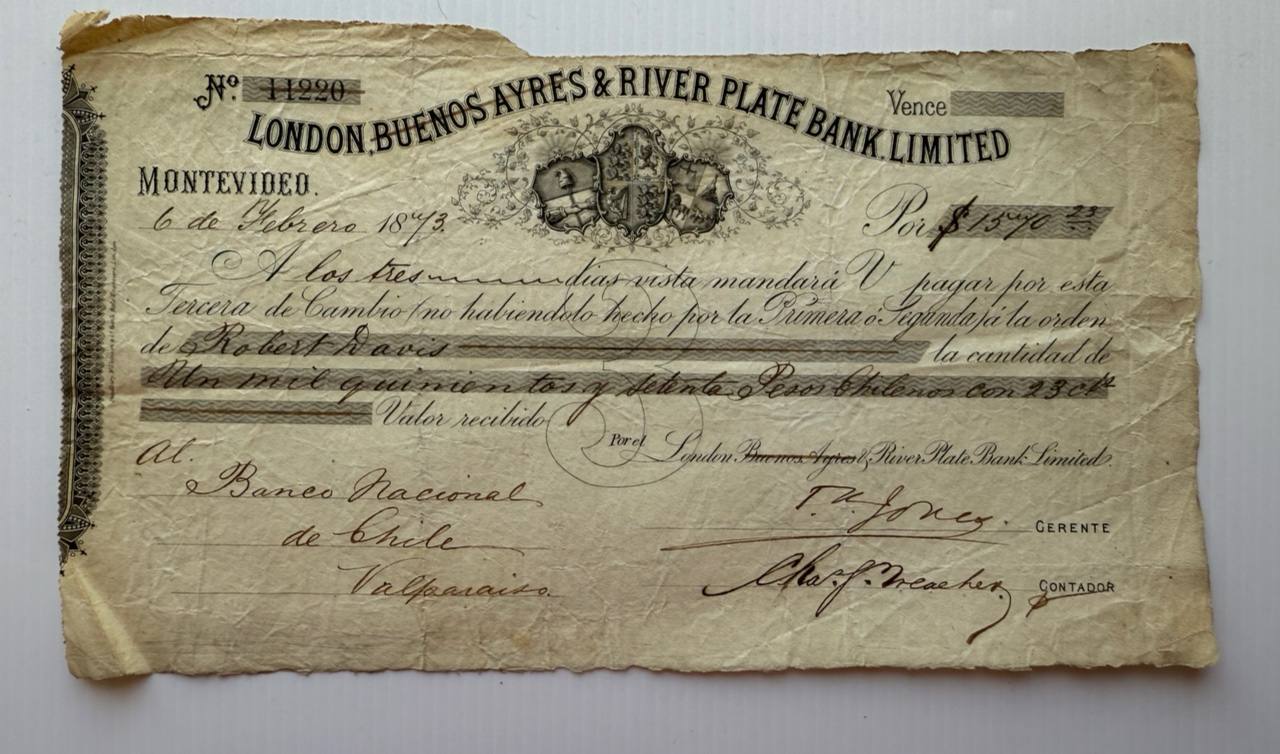 Nº 11220
LONDON, BUENOS AYRES & RIVER PLATE BANK, LIMITED
Vence
MONTEVIDEO.
6 de Febrero 1873.
Por $1570 23
A los tres dias vista mandará V pagar por esta
Tercera de Cambio (no habiendolo hecho por la Primera ó Segunda) á la orden
de Robert Davis la cantidad de
Un mil quinientos y setenta Pesos Chilenos con 23 cts
Valor recibido
Por el London Buenos Ayres & River Plate Bank Limited.
Al.
Banco Nacional
de Chile
Valparaiso.
Jones. GERENTE
Chas. J. CONTADOR
3